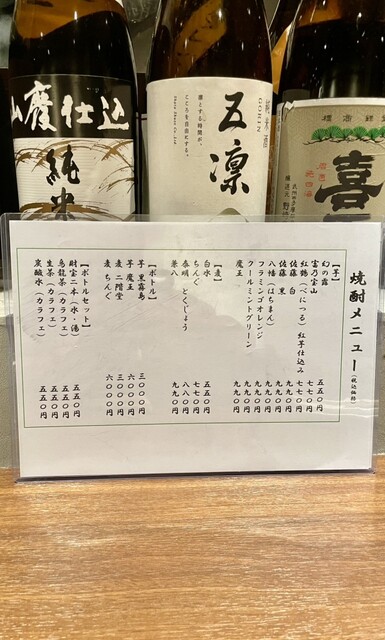 山廃仕込
純米
純米酒
GORIN
五凛
凛とする時間が、
こころを自由にする。
喜
焼酎メニュー(税込価格)
【芋】
幻の露 五五〇円
富乃宝山 七七〇円
紅鶴(べにつる)紅芋仕込み 七七〇円
佐藤 白 九九〇円
佐藤 黒 九九〇円
八幡(はちまん) 九九〇円
フラミンゴオレンジ 九九〇円
クールミントグリーン 九九〇円
魔王 九九〇円
【麦】
白水 五五〇円
ちんぐ 七七〇円
泰明 とくじょう 八八〇円
兼八 九九〇円
【ボトル】
芋 黒霧島 三〇〇〇円
芋 魔王 六〇〇〇円
麦 二階堂 三〇〇〇円
麦 ちんぐ 六〇〇〇円
【ボトルセット】
財宝二本(水・湯) 五五〇円
烏龍茶(カラフェ) 五五〇円
生茶(カラフェ) 五五〇円
炭酸水(カラフェ) 五五〇円